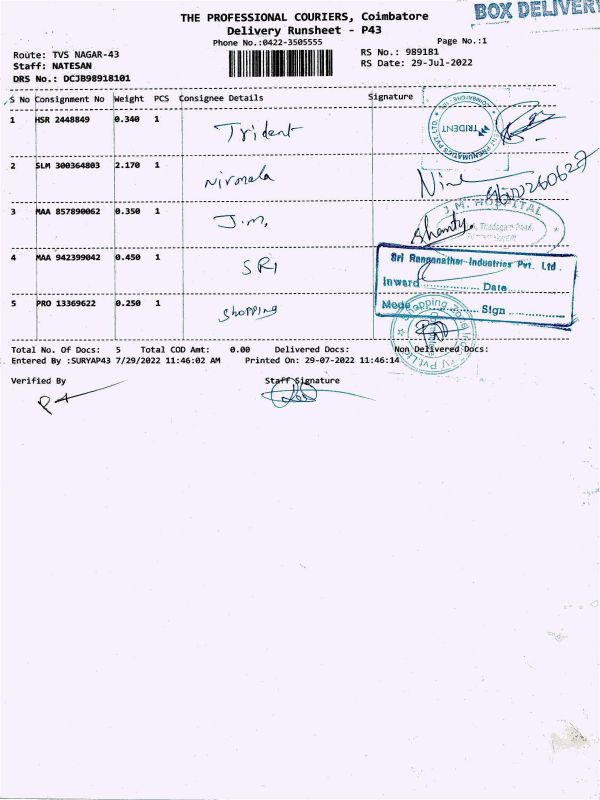 BOX DELIVERY
THE PROFESSIONAL COURIERS, Coimbatore
Delivery Runsheet - P43
Phone No.:0422-3505555
Page No.:1
Route: TVS NAGAR-43
RS No.: 989181
Staff: NATESAN
RS Date: 29-Jul-2022
DRS No.: DCJB98918101
S No Consignment No Weight PCS Consignee Details Signature
1 HSR 2448849 0.340 1 Trident
TRIDENT
2 SLM 300364803 2.170 1 Nirmala
9600260627
3 MAA 857890062 0.350 1 J.M.
J.M. HOSPITAL
Thadagam Road,
Shanty
4 MAA 942399042 0.450 1 SRI
Sri Ranganathar Industries Pvt. Ltd.
Inward Date
Mode Sign
5 PRO 13369622 0.250 1 Shopping
Total No. Of Docs: 5 Total COD Amt: 0.00 Delivered Docs: Non Delivered Docs:
Entered By :SURYAP43 7/29/2022 11:46:02 AM Printed On: 29-07-2022 11:46:14
Verified By Staff Signature